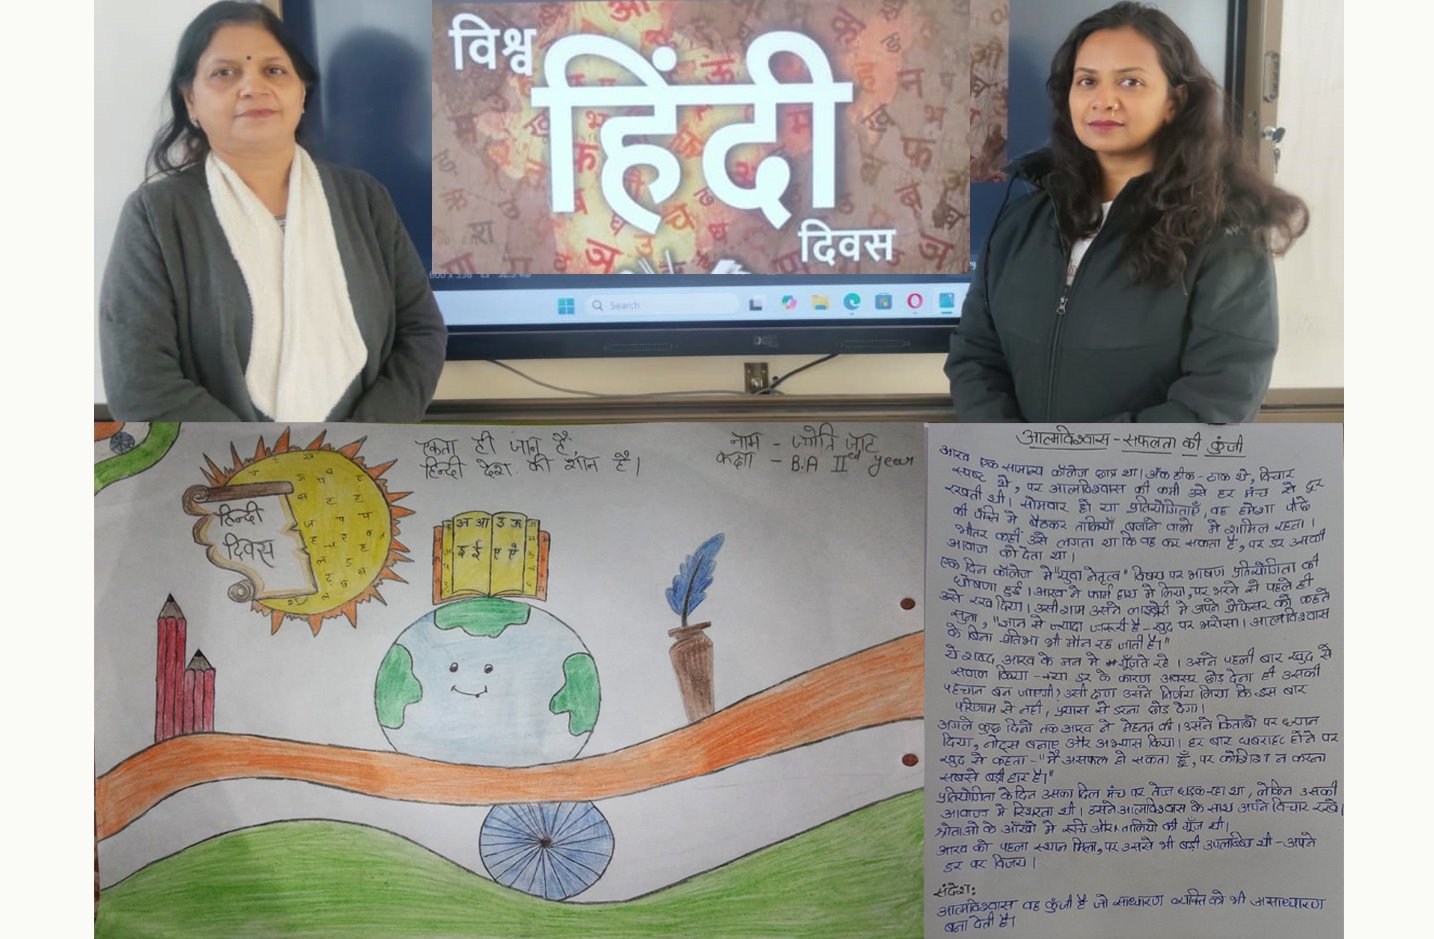 विश्व
हिंदी
दिवस
Search
एकता ही जान है,
हिन्दी देश की शान है।
नाम - ज्योति जाट
कक्षा - B.A IInd year
हिन्दी
दिवस
अ आ उ ऊ
इ ई ए ऐ
आत्मविश्वास - सफलता की कुंजी
आरव एक सामान्य कॉलेज छात्र था। अंक ठीक-ठाक थे, विचार
स्पष्ट थे, पर आत्मविश्वास की कमी उसे हर मंच से दूर
रखती थी। सेमिनार हो या प्रतियोगिताएँ, वह हमेशा पीछे
की पंक्ति में बैठकर तालियाँ बजाने वालों में शामिल रहता।
भीतर कहीं उसे लगता था कि वह कर सकता है, पर डर उसकी
आवाज को देता था।
एक दिन कॉलेज में "युवा नेतृत्व" विषय पर भाषण प्रतियोगिता की
घोषणा हुई। आरव ने फार्म हाथ में लिया, पर भरने से पहले ही
उसे रख दिया। उसी शाम उसने लाइब्रेरी में अपने प्रोफेसर को कहते
सुना, "ज्ञान से ज्यादा जरूरी है - खुद पर भरोसा। आत्मविश्वास
के बिना प्रतिभा भी मौन रह जाती है।"
ये शब्द आरव के मन में गूँजते रहे। उसने पहली बार खुद से
सवाल किया - क्या डर के कारण अवसर छोड़ देना ही उसकी
पहचान बन जाएगी? उसी क्षण उसने निर्णय लिया कि इस बार
परिणाम से नहीं, प्रयास से डरना छोड़ देगा।
अगले कुछ दिनों तक आरव ने मेहनत की। उसने किताबों पर ध्यान
दिया, नोट्स बनाए और अभ्यास किया। हर बार घबराहट होने पर
खुद से कहता - "मैं असफल हो सकता हूँ, पर कोशिश न करना
सबसे बड़ी हार है।"
प्रतियोगिता के दिन उसका दिल मंच पर तेज धड़क रहा था, लेकिन उसकी
आवाज में स्थिरता थी। उसने आत्मविश्वास के साथ अपने विचार रखे।
श्रोताओं के आँखों में रुचि और तालियों की गूँज थी।
आरव को पहला स्थान मिला, पर उससे भी बड़ी उपलब्धि थी - अपने
डर पर विजय।
संदेश:
आत्मविश्वास वह कुंजी है जो साधारण व्यक्ति को भी असाधारण
बना देती है।